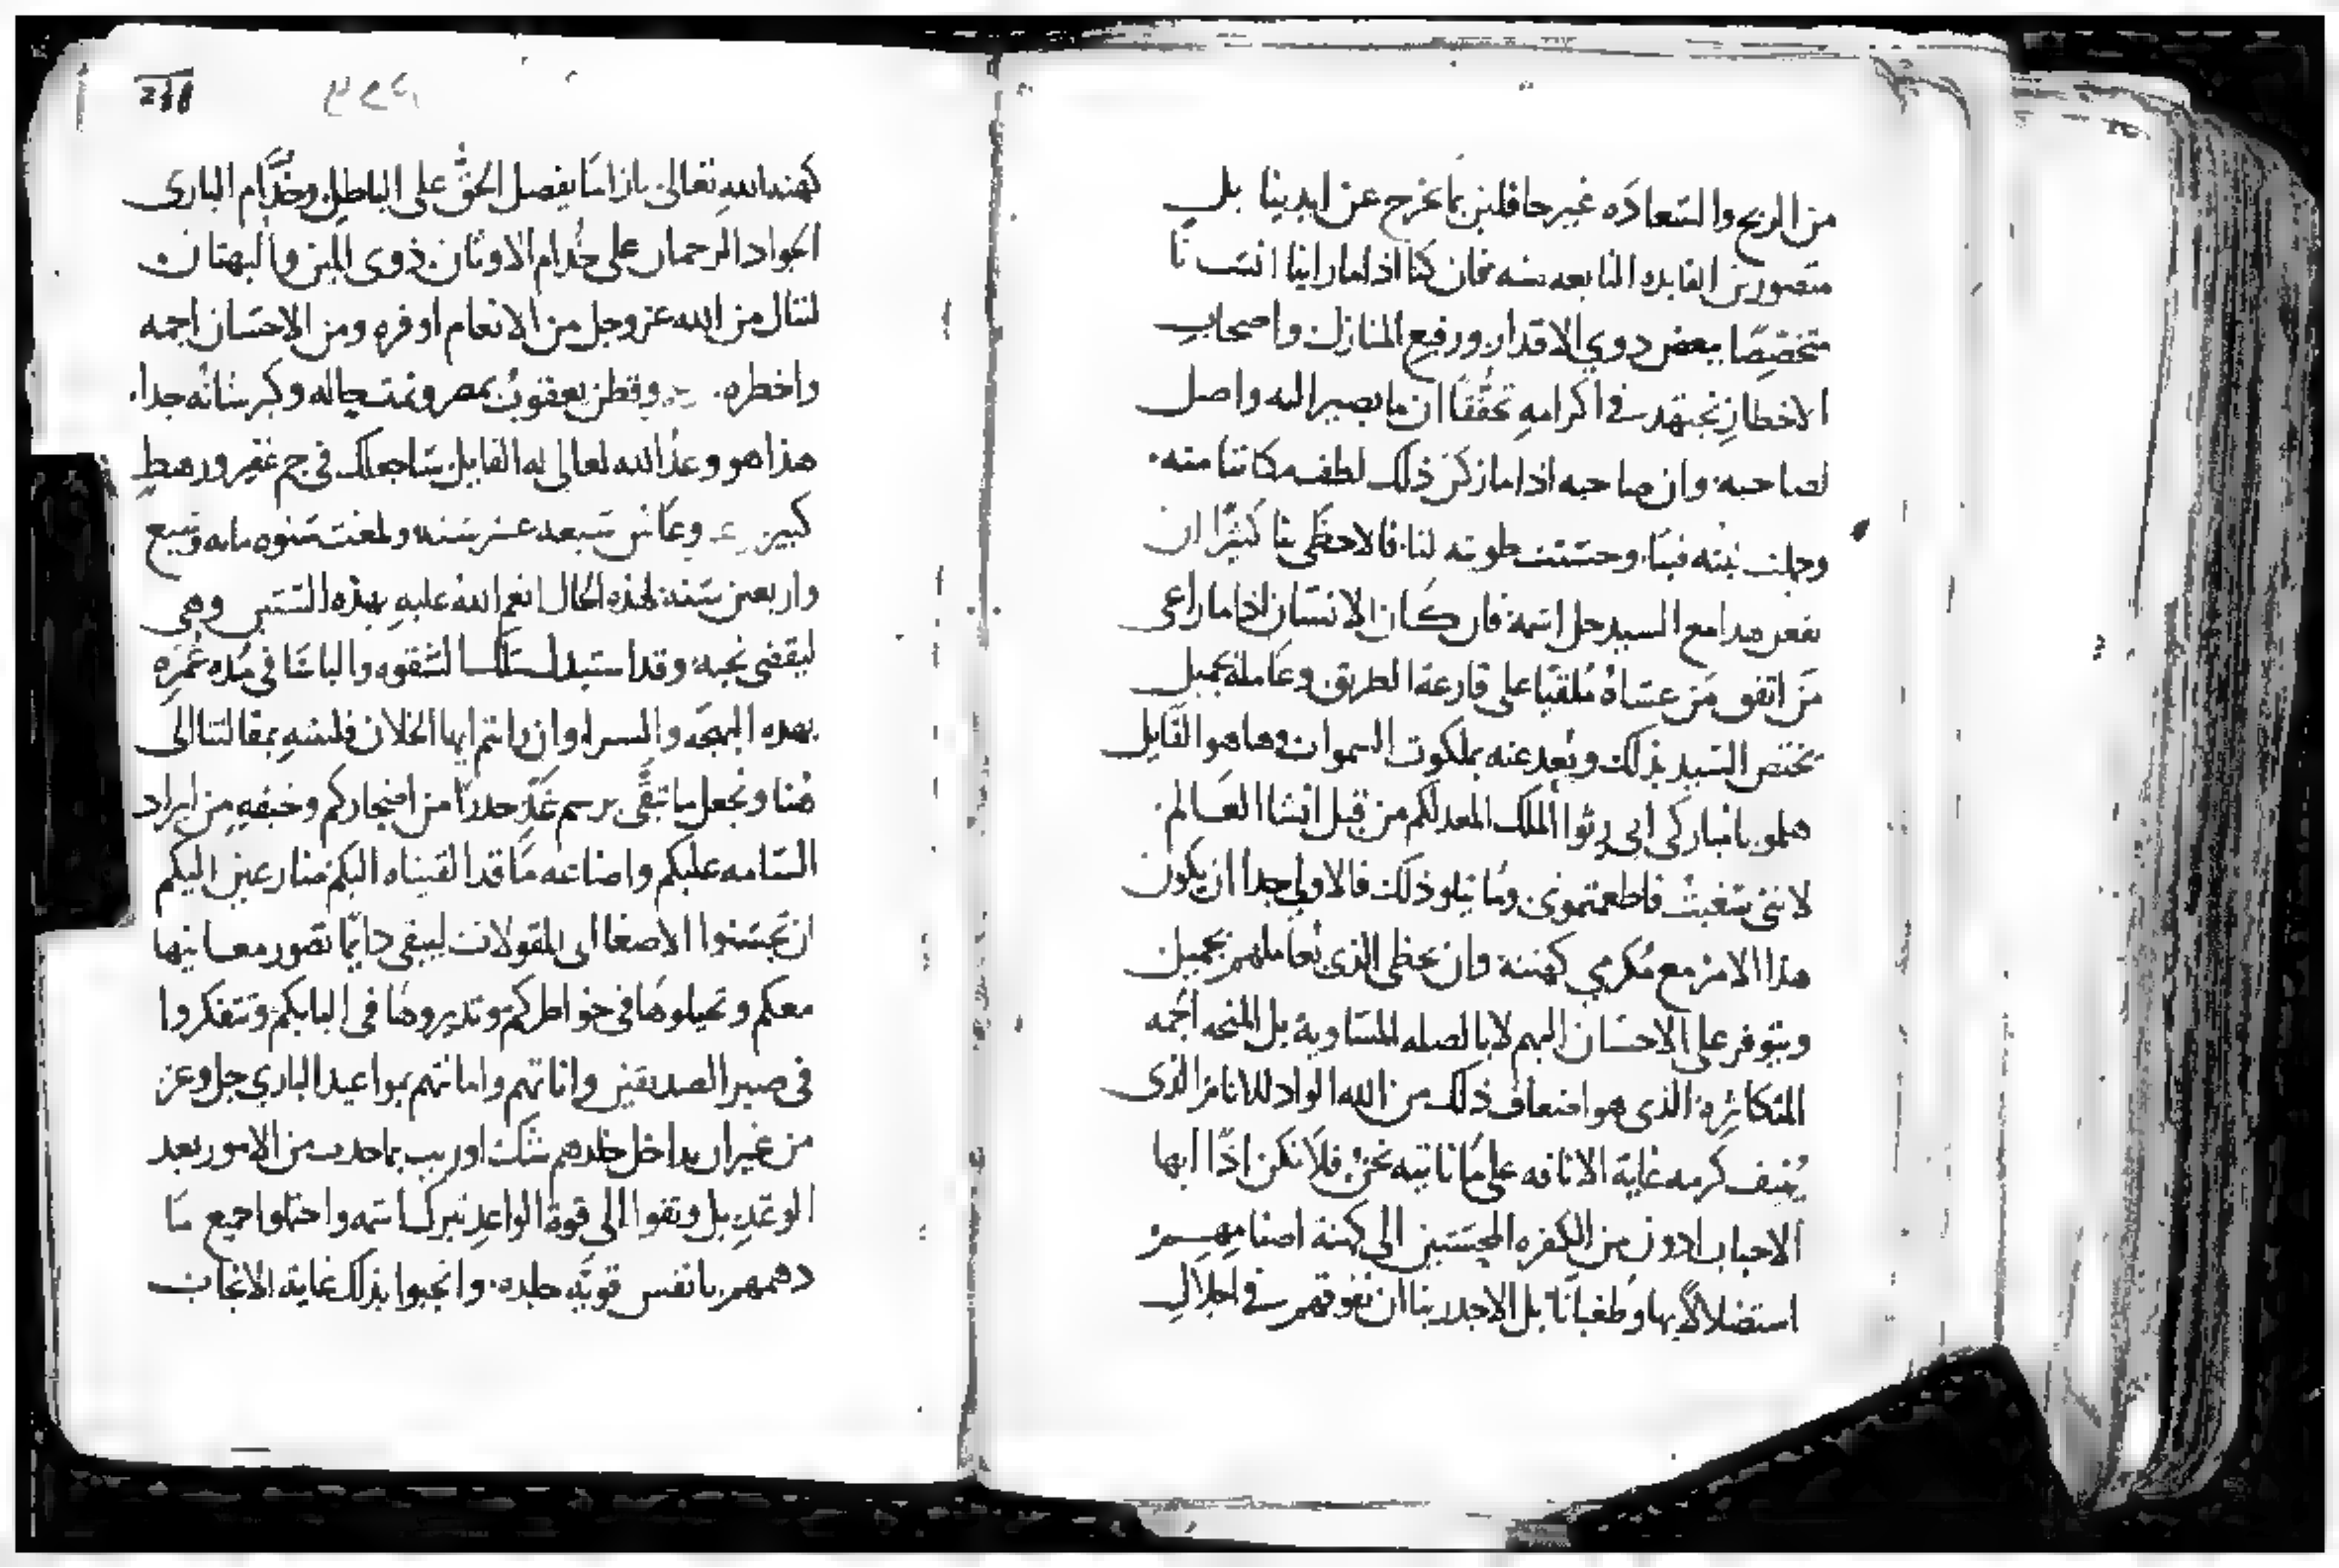 من الربح والسعاده غير حافلين بما يخرج عن ايدينا بل
متصورين الفايده التابعه منه فان كنا اذا ما راينا انسانا
متخصصا ببعض دوي الاقدار ورفيع المنازل واصحاب
الاخطار نجتهد في اكرامه تحققا ان ما يصير اليه واصل
لصاحبه وان صاحبه اذا ما زكن ذلك لطف مكانتنا منه
وجلت نيته فينا وحسنت طويته لنا فالاحظى بنا كثيرا ان
نفعل هدا مع السيد جل اسمه فان كان الانسان اذا ما راعى
من اتفق من عساه ملقيا على قارعة الطريق وعامله بجميل
يختص السيد بذلك ويعد عنه بملكوت السموات وها هو القايل
هلمو يا مباركي ابي رثوا الملك المعد لكم من قبل انشا العالم
لانني سغبت فاطعمتموني وما يتلو ذلك فالاولى جدا ان يكون
هذا الامر مع مكرمي كهنته وان يحظى الذي يعاملهم بجميل
ويتوفر على الاحسان اليهم لا بالصله المساوية بل المنحه الجمه
المتكاثره الذي هو اضعاف ذلك من الله الواد للانام الذي
ينيف كرمه غاية الانافه على ما ناتيه نحن فلا نكن اذا ايها
الاحباب ادون من الكفره المحسنين الى كهنة اصنامهم
استضلالا بها وطغيانا بل الاجدر بنا ان نفوقهم في اجلال
كهنة الله تعالى بازا ما يفضل الحق على الباطل وخدام الباري
الجواد الرحمان على خدام الاوثان ذوي المين والبهتان
لننال من الله عز وجل من الانعام اوفره ومن الاحسان اجمه
واخطره وقطن يعقوب بمصر ونمت حاله وكبر شانه جدا
هذا هو وعد الله تعالى له القايل ساجعلك في جم غفير ورهط
كبير وعاش سبعه عشر سنه وبلغت سنوه مايه وسبع
واربعين سنة لهذه الحال انعم الله عليه بهذه السنين وهي
ليقضي نحبه وقد استبدل تلك الشقوه والباسا في مده عمره
بهده البهجه والسرا وان رايتم ايها الخلان فلننه بمقالتنا الى
هنا ونجعل ما تبقى برسم غد حدرا من اضجاركم وخيفه من ايراد
السامه عليكم واضاعه ما قد القيناه اليكم ضارعين اليكم
ان تحسنوا الاصغا الى المقولات ليبقى دايما تصور معانيها
معكم وتميلوها في خواطركم وتديروها في البابكم وتتفكروا
في صبر الصديقين واناتهم وامانتهم بمواعيد الباري جل وعز
من غير ان يداخل خلدهم شك او ريب بما حدث من الامور بعد
الوعد بل وثقوا الى قوة الواعد تبارك اسمه واحتملوا جميع ما
دهمهم بانفس قويه جلده وانجبوا بذلك غاية الانجاب